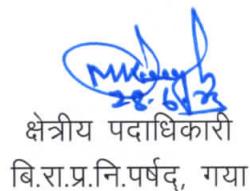 28.6.23
क्षेत्रीय पदाधिकारी
बि.रा.प्र.नि.पर्षद्, गया